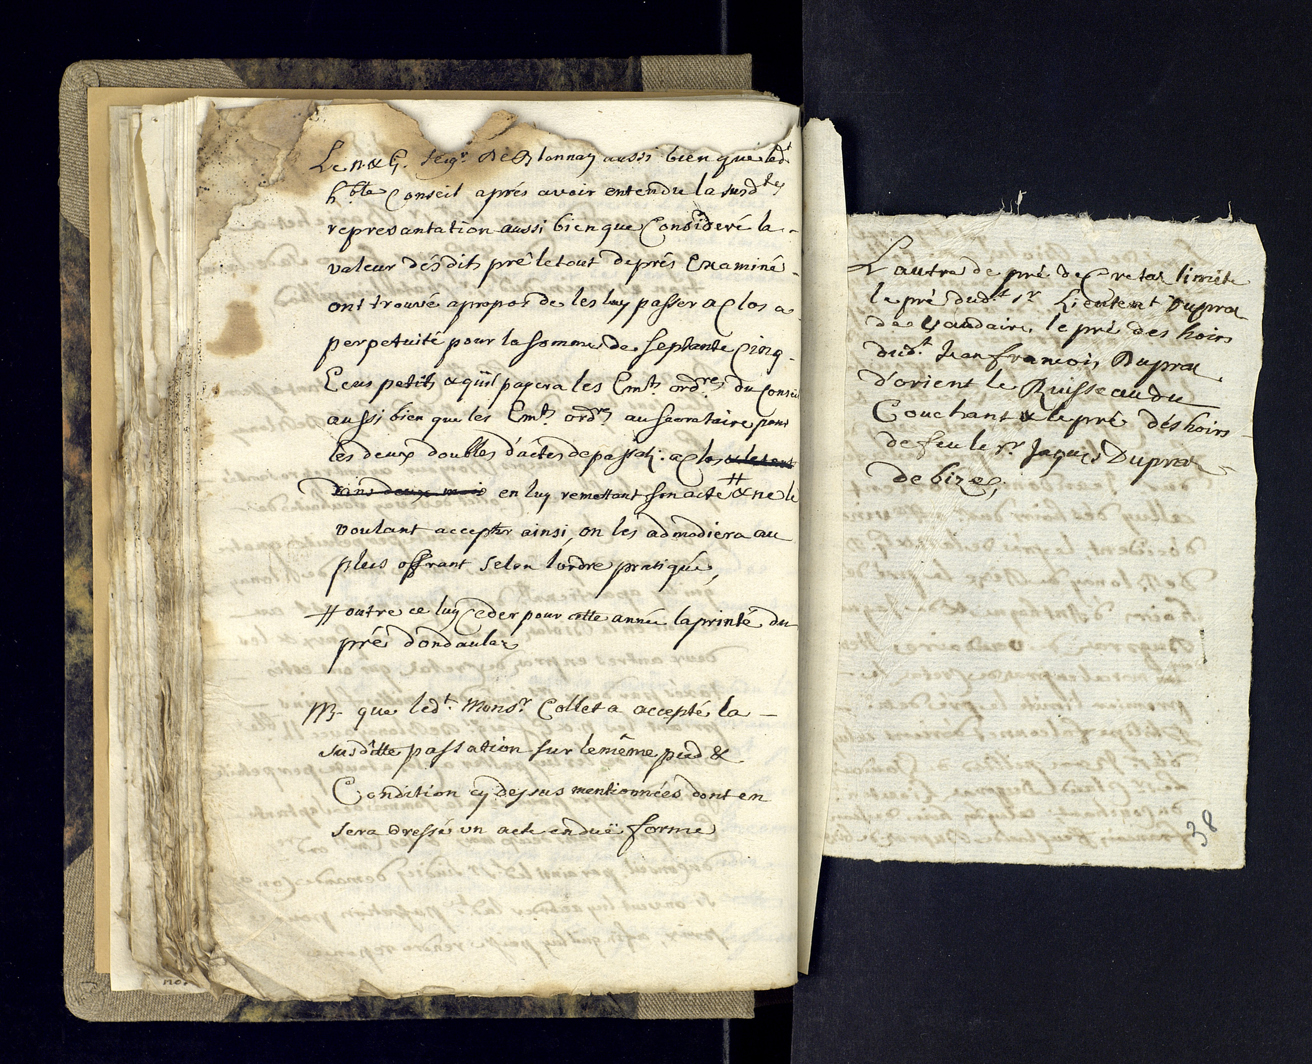 Le n & G. Seigr De Blonnay aussi bien que led.t
h.ble Conseil aprés avoir entendu la susd.tes
represantation aussi bien que Consideré la
valeur désdits pré le tout de prés Examiné
ont trouvé apropos de les luy passer a Clos a
perpetuité pour la somme de septante Cinq
Ecus petits & qúil payera les Emts ordres du Conseil
aussi bien que les Emts ordrs au secretaire pour
les deux doubles d'actes de passati. a Clos & le tout
dans deux mois en luy remettant son acte # & ne le
voulant accepter ainsi, on les admodiera au
plus offrant selon l'ordre pratiqué,
# outre ce luy Ceder pour cette année la printé du
pré d'ondaulaz
que led.t Monsr Collet a accepté la
susditte passation sur le même pied &
Condition cy dessus mentionnées dont en
sera dressé un acte en duë forme
L'autre de pré de Cretaz limite
le pré dudt Sr Lieutent Dupraz
de Vaudaire, le pré des hoirs
dudt Jean francois Dupraz
d'orient le Ruisseau du
Couchant & le pré dés hoirs
de feu le Sr Jaques Dupraz
de bize,
38